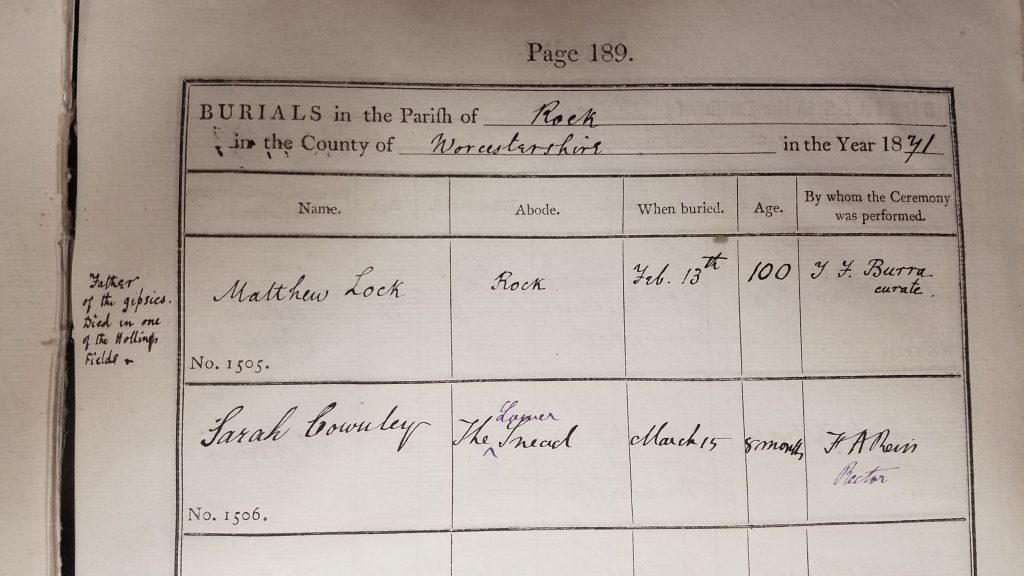 Page 189.
BURIALS in the Parish of Rock
in the County of Worcestershire in the Year 1871
Name. Abode. When buried. Age. By whom the Ceremony
was performed.
Father
of the gipsies.
Died in one
of the Hollings
Fields
Matthew Lock Rock Feb. 13th 100 Burra
curate.
No. 1505.
Lower
Sarah Cownley The Snead March 15 8 months F. A
Rector
No. 1506.